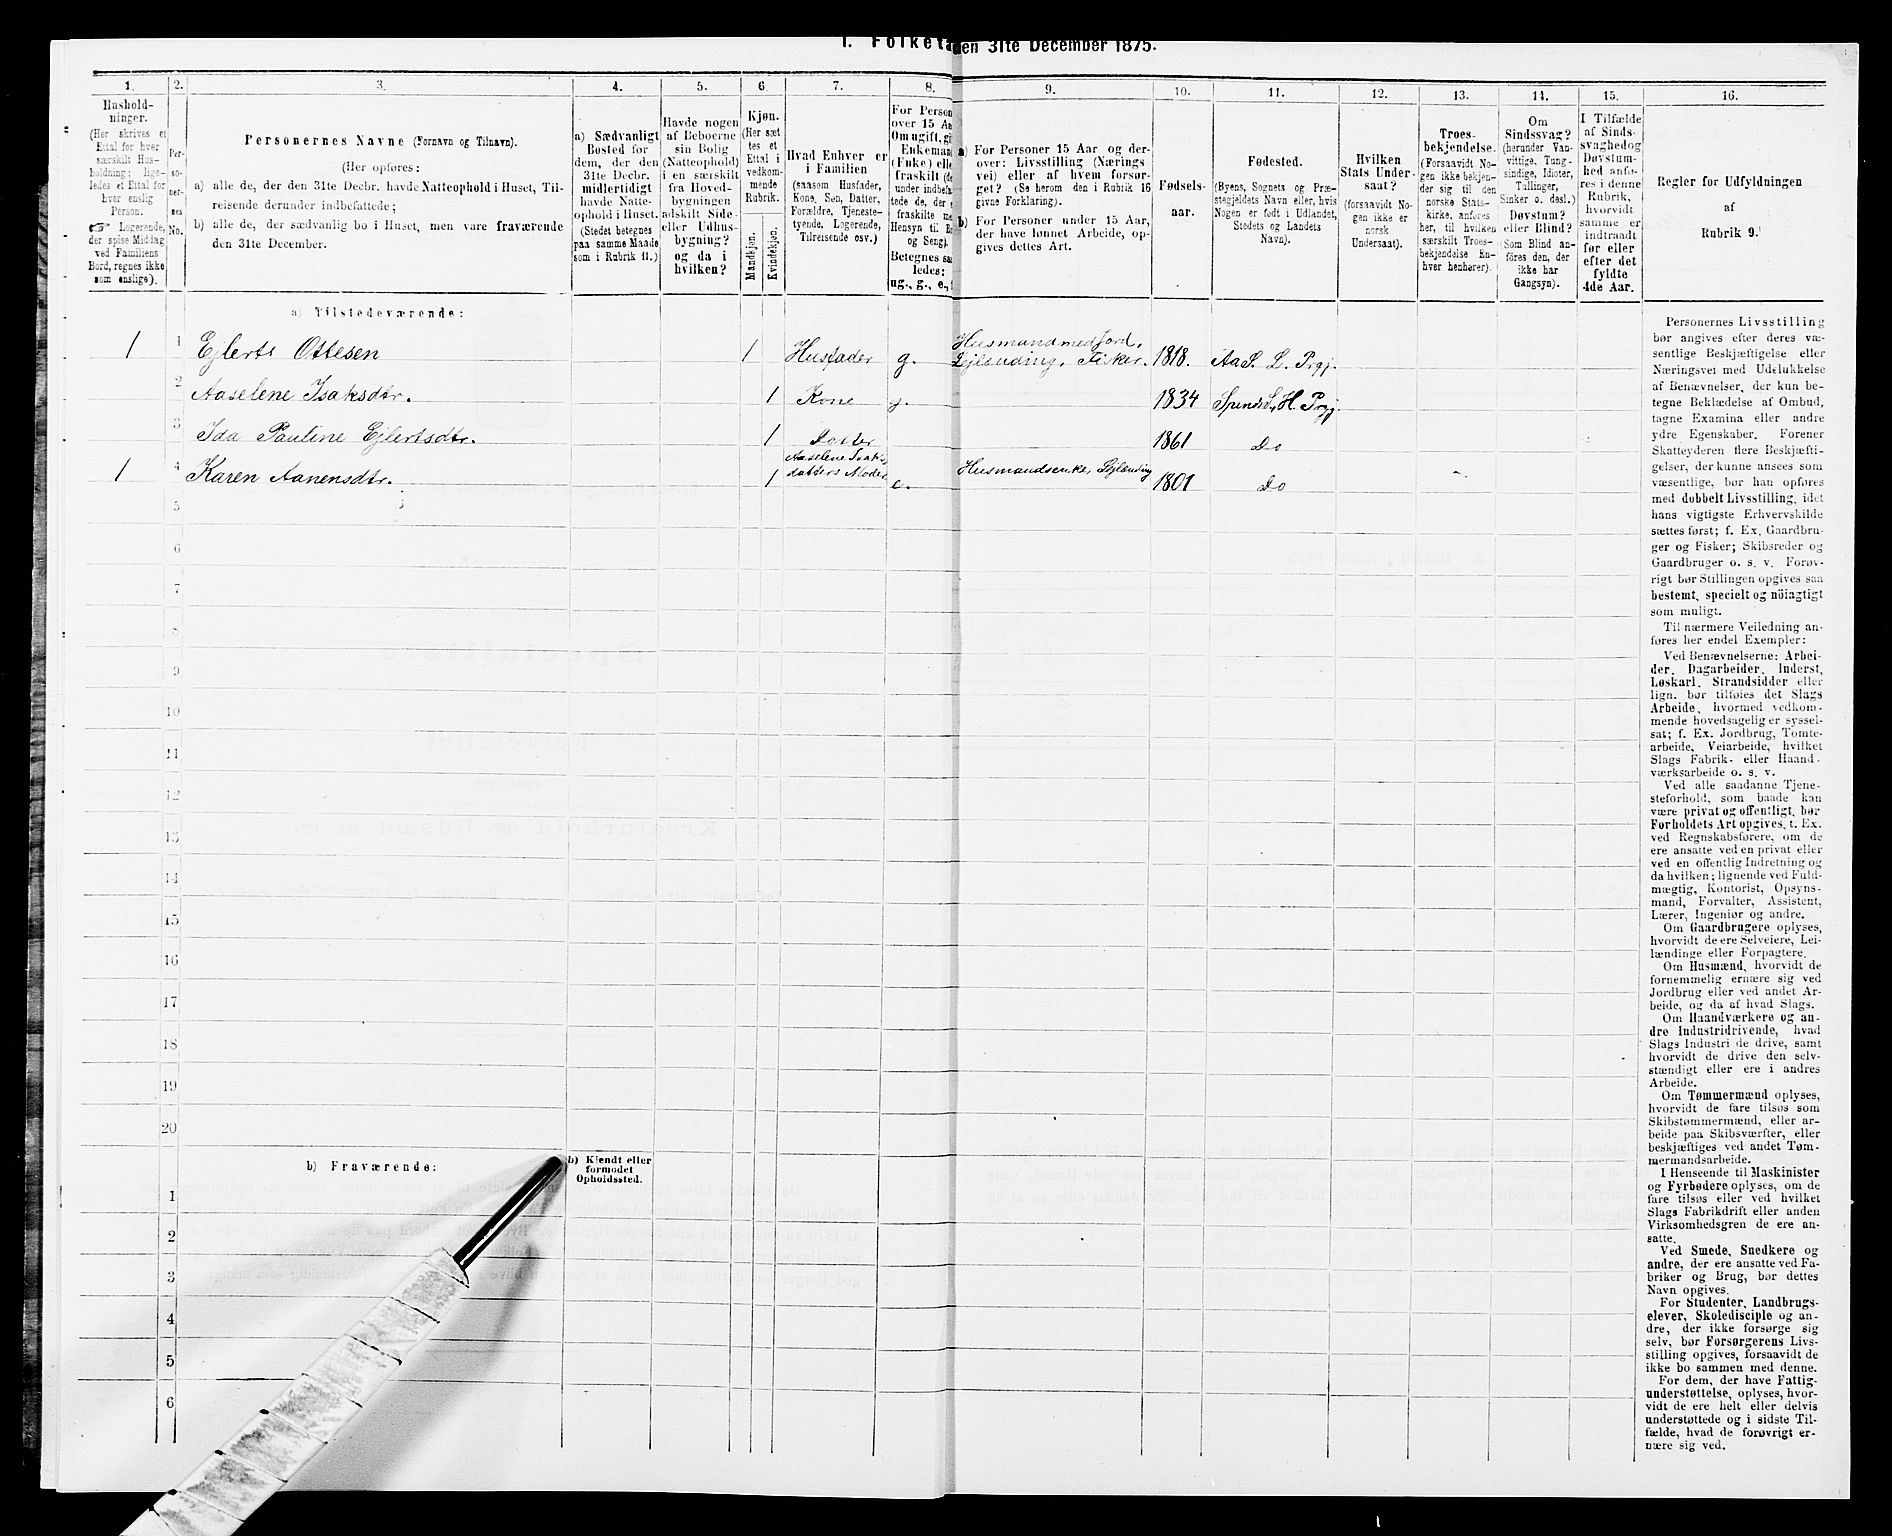 I. Folket
den 31te December 1875.
1.
Hushold-
ninger.
(Her skrives et
Ettal for hver
særskilt Hus-
holdning; lige-
ledes et Ettal for
hver enslig
Person.
☞ Logerende,
der spise Middag
ved Familiens
Bord, regnes ikke
som enslige).
2.
Per-
so-
ner-
nes
No.
3.
Personernes Navne (Fornavn og Tilnavn).
(Her opføres:
a) alle de, der den 31te Decbr. havde Natteophold i Huset, Til-
reisende derunder indbefattede;
b) alle de, der sædvanlig bo i Huset, men vare fraværende
den 31te December.
4.
a) Sædvanligt
Bosted for
dem, der den
31te Decbr.
midlertidigt
havde Natte-
ophold i Huset.
(Stedet betegnes
paa samme Maade
som i Rubrik 11.)
5.
Havde nogen
af Beboerne
sin Bolig
(Natteophold)
i en særskilt
fra Hoved-
bygningen
adskilt Side-
eller Udhus-
bygning?
og da i
hvilken?
6.
Kjøn.
(Her sæt
tes et
Ettal i
vedkom-
mende
Rubrik.
Mandkjøn.
Kvindekjøn.
7.
Hvad Enhver er
i Familien
(saasom Husfader,
Kone, Søn, Datter,
Forældre, Tjeneste-
tyende, Logerende,
Tilreisende osv.)
8.
For Person
over 15 Aa
Om ugift, gi
Enkeman
(Enke) elle
fraskilt (de
under indbefa
tede de, der e
fraskilte me
Hensyn til Bo
og Seng).
Betegnes saa
ledes:
ug., g., e.,
9.
a) For Personer 15 Aar og der-
over: Livsstilling (Nærings
vei) eller af hvem forsør-
get? (Se herom den i Rubrik 16
givne Forklaring).
b) For Personer under 15 Aar,
der have lønnet Arbeide, op-
gives dettes Art.
10.
Fødsels-
aar.
11.
Fødested.
(Byens, Sognets og Præ-
stegjeldets Navn eller, hvis
Nogen er født i Udlandet,
Stedets og Landets
Navn).
12.
Hvilken
Stats Under-
saat?
(forsaavidt No-
gen ikke er
norsk
Undersaat).
13.
Troes-
bekjendelse.
(Forsaavidt No-
gen ikke bekjen-
der sig til den
norske Stats-
kirke, anføres
her, til hvilken
særskilt Troes-
bekjendelse En-
hver henhører).
14.
Om
Sindssvag?
(herunder Van-
vittige, Tung-
sindige, Idioter,
Tullinger,
Sinker o. desl.)
Døvstum?
eller Blind?
(Som Blind an-
føres den, der
ikke har
Gangsyn).
15.
I Tilfælde
af Sinds-
svaghed og
Døvstum-
hed anfø-
res i denne
Rubrik,
hvorvidt
samme er
indtraadt
før eller
efter det
fyldte
4de Aar.
16.
Regler for Udfyldningen
af
Rubrik 9.
a) Tilstedeværende:
1 1 Ejlerts Ottesen 1 Husfader g. Husmand med Jord,
Lejlænding, Fisker. 1818. Aa S. L. Prgj.
2 Aaselene Isaksdtr. 1 Kone g. 1834 Spinds S., H. Prgj.
3 Ida Pauline Ejlertsdtr. 1 Datter 1861 Do
1 4 Karen Aanensdtr. Aaselene Isaks-
datters Moder 1 e. Husmandsenke, Lejlænding 1801 Do
5
6
7
8
9
10
11
12
13
14
15
16
17
18
19
20
b) Fraværende:
b) Kjendt eller
formodet
Opholdssted.
1
2
3
4
5
6
Personernes Livsstilling
bør angives efter deres væ-
sentlige Beskjæftigelse eller
Næringsvei med Udelukkelse
af Benævnelser, der kun be-
tegne Beklædelse af Ombud,
tagne Examina eller andre
ydre Egenskaber. Forener
Skatteyderen flere Beskjæfti-
gelser, der kunne ansees som
væsentlige, bør han opføres
med dobbelt Livsstilling, idet
hans vigtigste Erhvervskilde
sættes først; f. Ex. Gaardbru-
ger og Fisker; Skibsreder og
Gaardbruger o. s. v. Forøv-
rigt bør Stillingen opgives saa
bestemt, specielt og nöiagtigt
som muligt.
Til nærmere Veiledning an-
føres her endel Exempler:
Ved Benævnelserne: Arbei-
der, Dagarbeider, Inderst,
Løskarl, Strandsidder eller
lign. bør tilføies det Slags
Arbeide, hvormed vedkom-
mende hovedsagelig er syssel-
sat; f. Ex. Jordbrug, Tomte-
arbeide, Veiarbeide, hvilket
Slags Fabrik- eller Haand-
værksarbeide o. s. v.
Ved alle saadanne Tjene-
steforhold, som baade kan
være privat og offentligt, bør
Forholdets Art opgives, t. Ex.
ved Regnskabsførere, om de
ere ansatte ved en privat eller
ved en offentlig Indretning og
da hvilken; lignende ved Fuld-
mægtig, Kontorist, Opsyns-
mand, Forvalter, Assistent,
Lærer, Ingeniør og andre.
Om Gaardbrugere oplyses,
hvorvidt de ere Selveiere, Lei-
lændinge eller Forpagtere.
Om Husmænd, hvorvidt de
fornemmelig ernære sig ved
Jordbrug eller ved andet Ar-
beide, og da af hvad Slags.
Om Haandværkere og an-
dre Industridrivende, hvad
Slags Industri de drive, samt
hvorvidt de drive den selv-
stændigt eller ere i andres
Arbeide.
Om Tømmermænd oplyses,
hvorvidt de fare tilsøs som
Skibstømmermænd, eller ar-
beide paa Skibsværfter, eller
beskjæftiges ved andet Tøm-
mermandsarbeide.
I Henseende til Maskinister
og Fyrbødere oplyses, om de
fare tilsøs eller ved hvilket
Slags Fabrikdrift eller anden
Virksomhedsgren de ere an-
satte.
Ved Smede, Snedkere og
andre, der ere ansatte ved Fa-
briker og Brug, bør dettes
Navn opgives.
For Studenter, Landbrugs-
elever, Skoledisciple og an-
dre, der ikke forsørge sig
selv, bør Forsørgerens Livs-
stilling opgives, forsaavidt de
ikke bo sammen med denne.
For dem, der have Fattig-
understøttelse, oplyses, hvor-
vidt de ere helt eller delvis
understøttede og i sidste Til-
fælde, hvad de forøvrigt er-
nære sig ved.